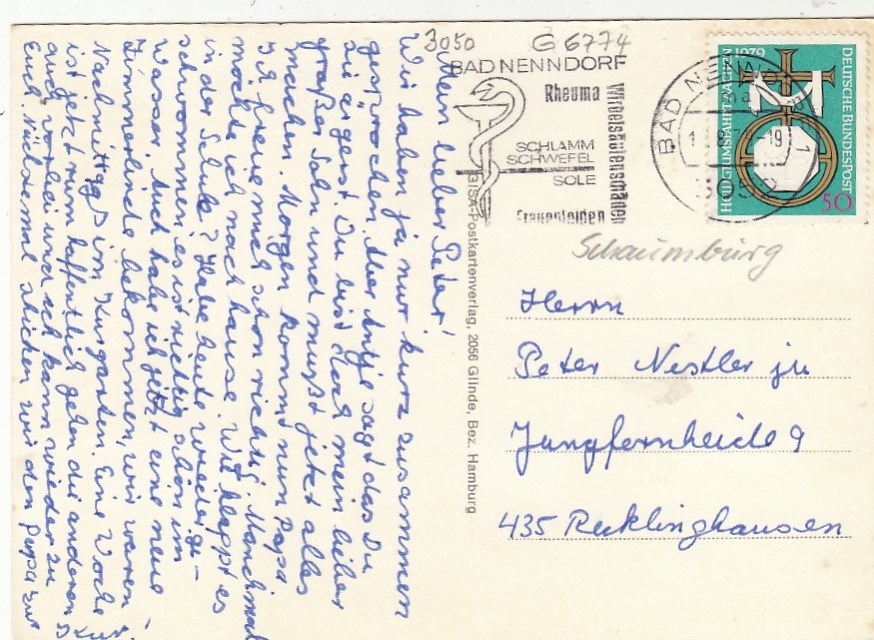 Mein lieber Peter!
Wir haben ja nur kurz zusammen
gesprochen. Aber Antje sagt das Du
sie ärgerst. Du bist doch mein lieber
großer Sohn und mußt jetzt alles
machen. Morgen kommt nun Papa
Ich freue mich schon richtig. Manchmal
möchte ich nach hause. Wie klappt es
in der Schule? Habe heute wieder ge-
schwommen, es ist richtig schön im
Wasser. Auch habe ich jetzt eine neue
Zimmerlinde bekommen, wir waren
Nachmittags im Kurgarten. Eine Woche
ist jetzt rum hoffentlich gehen die anderen
auch vorbei und ich kann wieder zu
Euch. Nächstmal schicken wir den Papa zur
Kur.
BISA-Postkartenverlag, 2056 Glinde, Bez. Hamburg
3050 G 6774
BAD NENNDORF
Rheuma
Wirbelsäulenschäden
SCHLAMM
SCHWEFEL
SOLE
Frauenleiden
BAD NENNDORF
3052
HEILIGTUMSFAHRT AACHEN 1979
DEUTSCHE BUNDESPOST
50
Schaumburg
Herrn
Peter Nestler ju
Jungfernheide 9
435 Recklinghausen